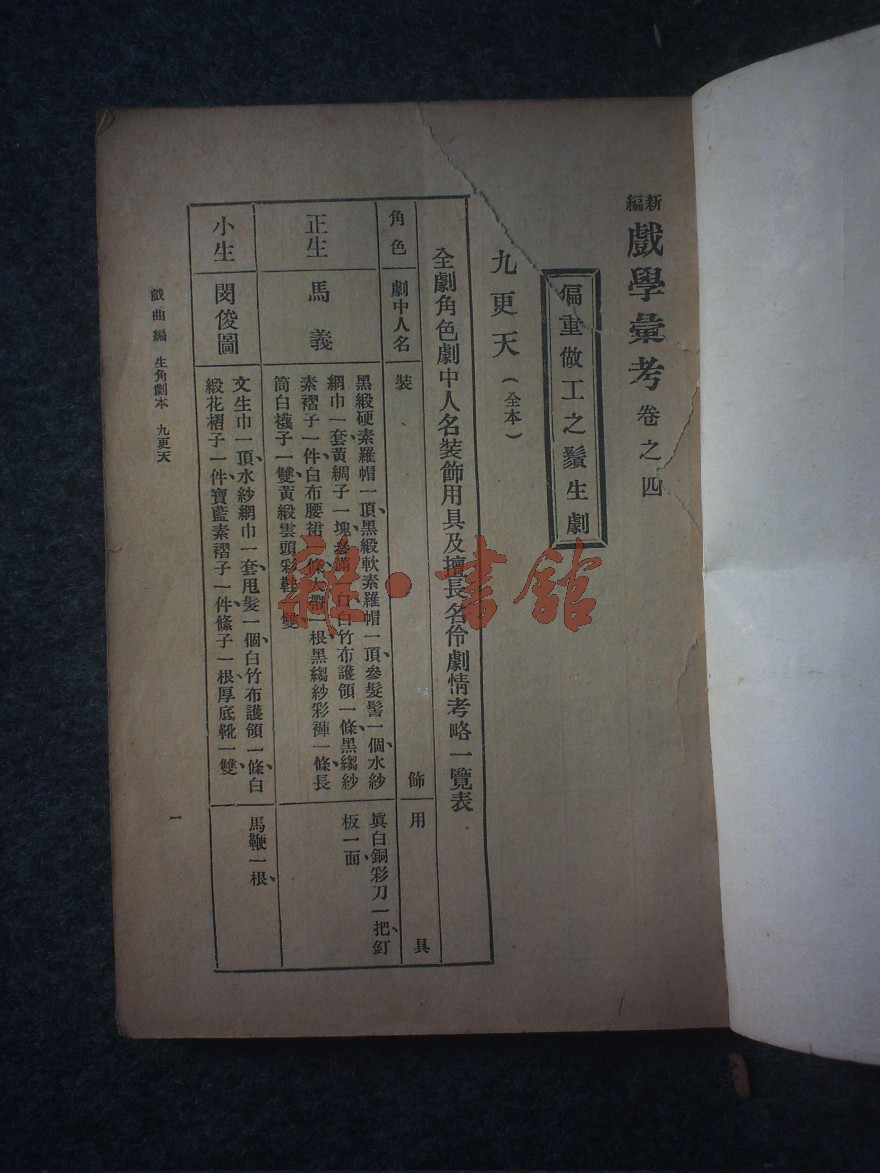 新編 戲學彙考 卷之四
偏重做工之鬚生劇
九更天（全本）
全劇角色劇中人名裝飾用具及擅長名伶劇情考略一覽表
角色 劇中人名 裝飾 用具
正生 馬義
黑緞硬素羅帽一頂、黑緞軟素羅帽一頂、參髮髻一個、水紗
網巾一套、黃綢子一塊、參滿一口、白竹布護領一條、黑縐紗
素褶子一件、白布腰裙一條、大帶一根、黑縐紗彩褲一條、長
筒白襪子一雙、黃緞雲頭彩鞋一雙
真白銅彩刀一把、釘
板一面、
小生 閔俊圖
文生巾一頂、水紗網巾一套、甩髮一個、白竹布護領一條、白
緞花褶子一件、寶藍素褶子一件、絛子一根、厚底靴一雙、
馬鞭一根、
戲曲編 生角劇本 九更天
一
雜·書館